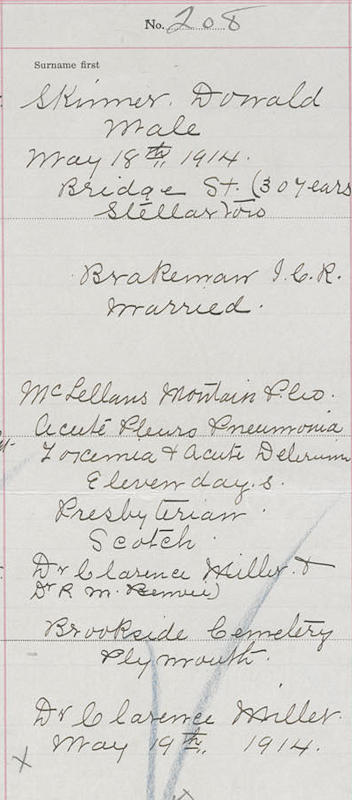 No. 208
Surname first
Skinner. Donald
Male
May 18th, 1914.
Bridge St. (30 years
Stellarton
Brakeman I.C.R.
Married.
McLellans Montain P.Co.
Acute Pleuro Pneumonia
Toxemia & Acute Delerium
Eleven days.
Presbyterian.
Scotch.
Dr Clarence Miller &
Dr R M. Benvie)
Brookside Cemetery
Plymouth.
Dr Clarence Miller.
May 19th, 1914.
X